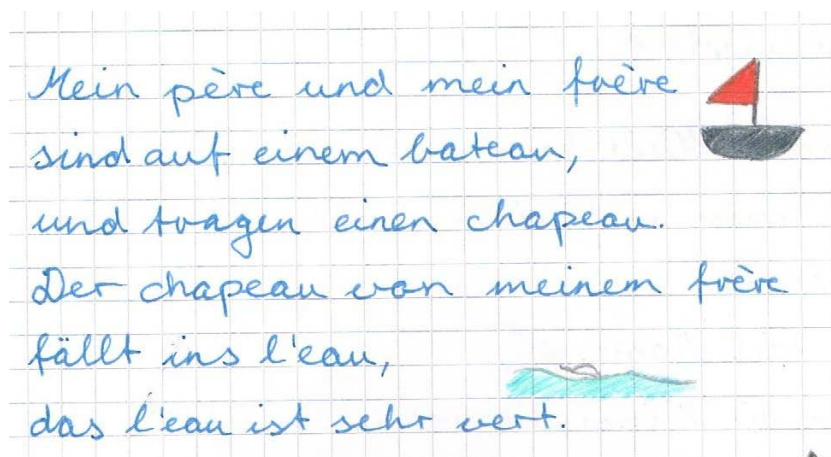 Mein père und mein frère
sind auf einem bateau,
und tragen einen chapeau.
Der chapeau von meinem frère
fällt ins l'eau,
das l'eau ist sehr vert.